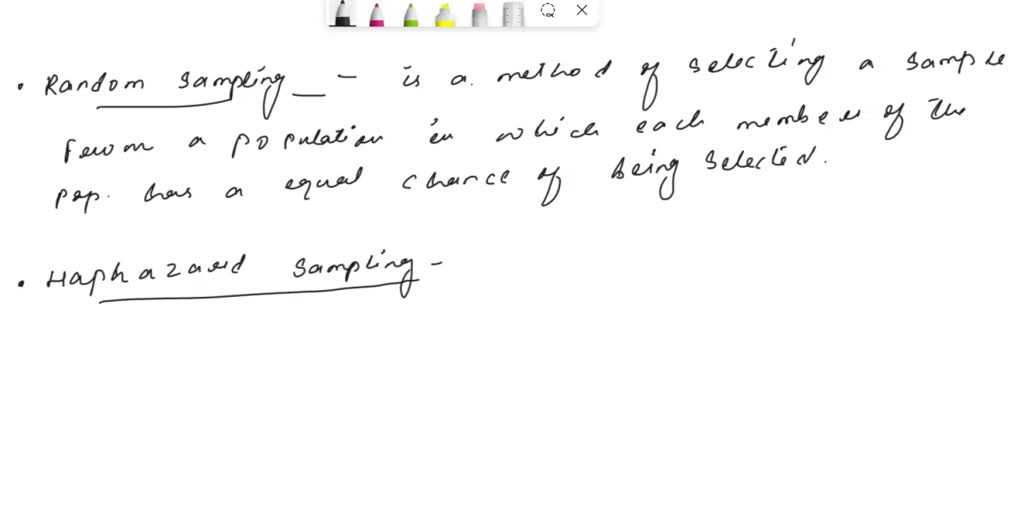 • Random Sampling - is a method of selecting a sample
from a population in which each member of the
pop. has a equal chance of being selected.
• Haphazard sampling -